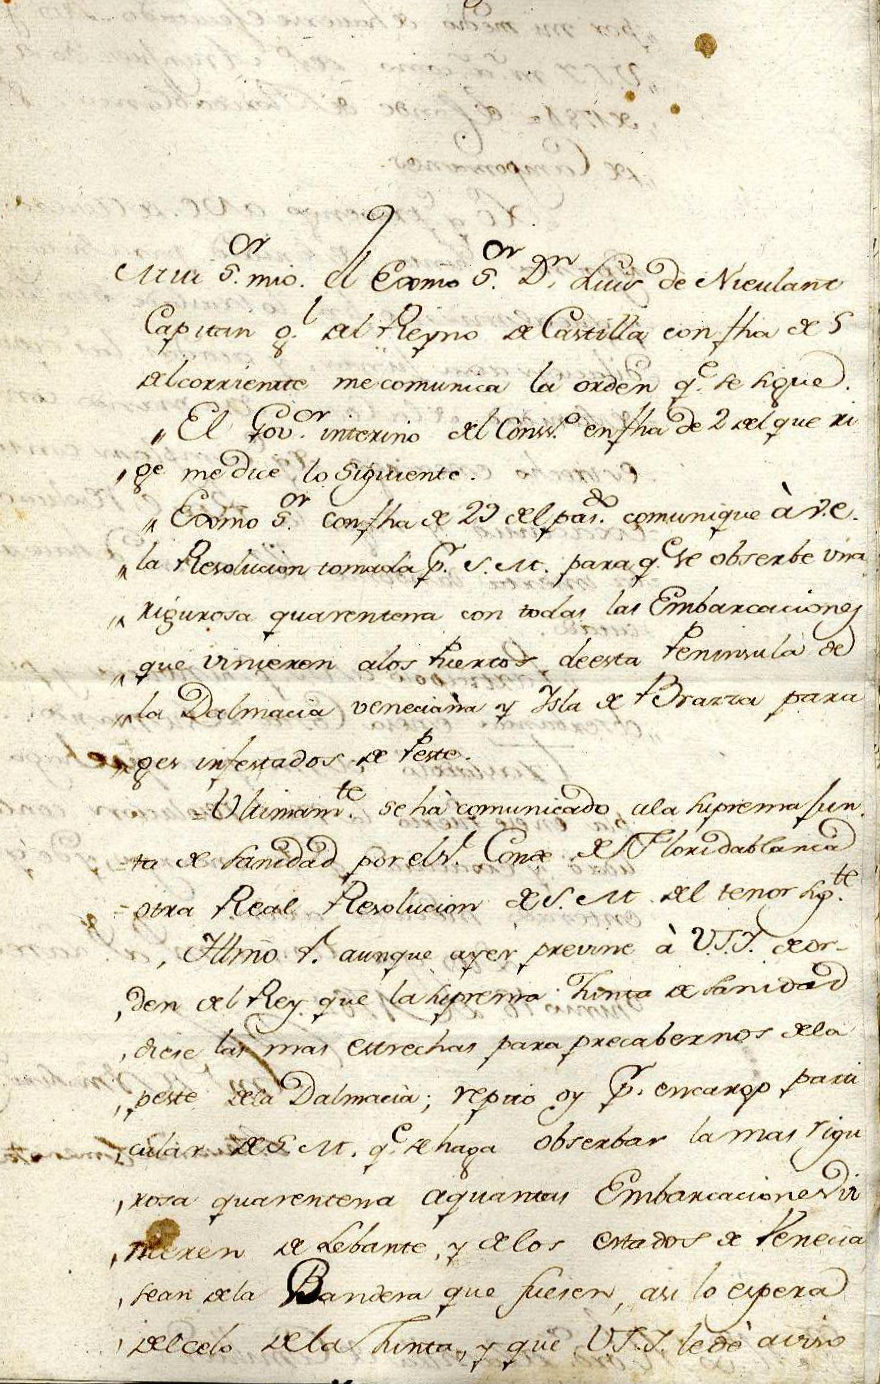 Mui S.or mio. el Exmo S.or D.n Luis de Nieulant
Capitan g.l del Reyno de Castilla con fha de 5
del corriente me comunica la orden q.e se sigue.
" El Gov.or interino del Cons.o en fha de 2 del que ri
" ge me dice lo siguiente.
" Exmo S.or con fha de 29 del pas.do comuniqué à V.e.
" la Resolucion tomada p.r S. M. para q.e se obserbe una
" rigurosa quarentena con todas las Embarcaciones
" que vinieren a los Puertos de esta Peninsula de
" la Dalmacia veneciana y Ysla de Brazza para
" ges infestados de Peste.
= Ultimam.te se hà comunicado a la suprema Jun
= ta de sanidad por el S.r Conde de Floridablanca
= otra Real Resolucion de S. M. del tenor sig.te
, Illmo S.r aunque ayer previne à V.S.I. de or-
, den del Rey que la suprema Junta de sanidad
, diese las mas estrechas para precabernos de la
, peste de la Dalmacia; repito oy p.r encargo parti
, cular de S. M. q.e se haga obserbar la mas rigu
, rosa quarentena a quantas Embarcaciones vi
, nieren de Lebante, y de los estados de Venecia
, sean de la Bandera que fuesen, asi lo espera
, del celo de la Junta, y que V.S.I. le dè aviso